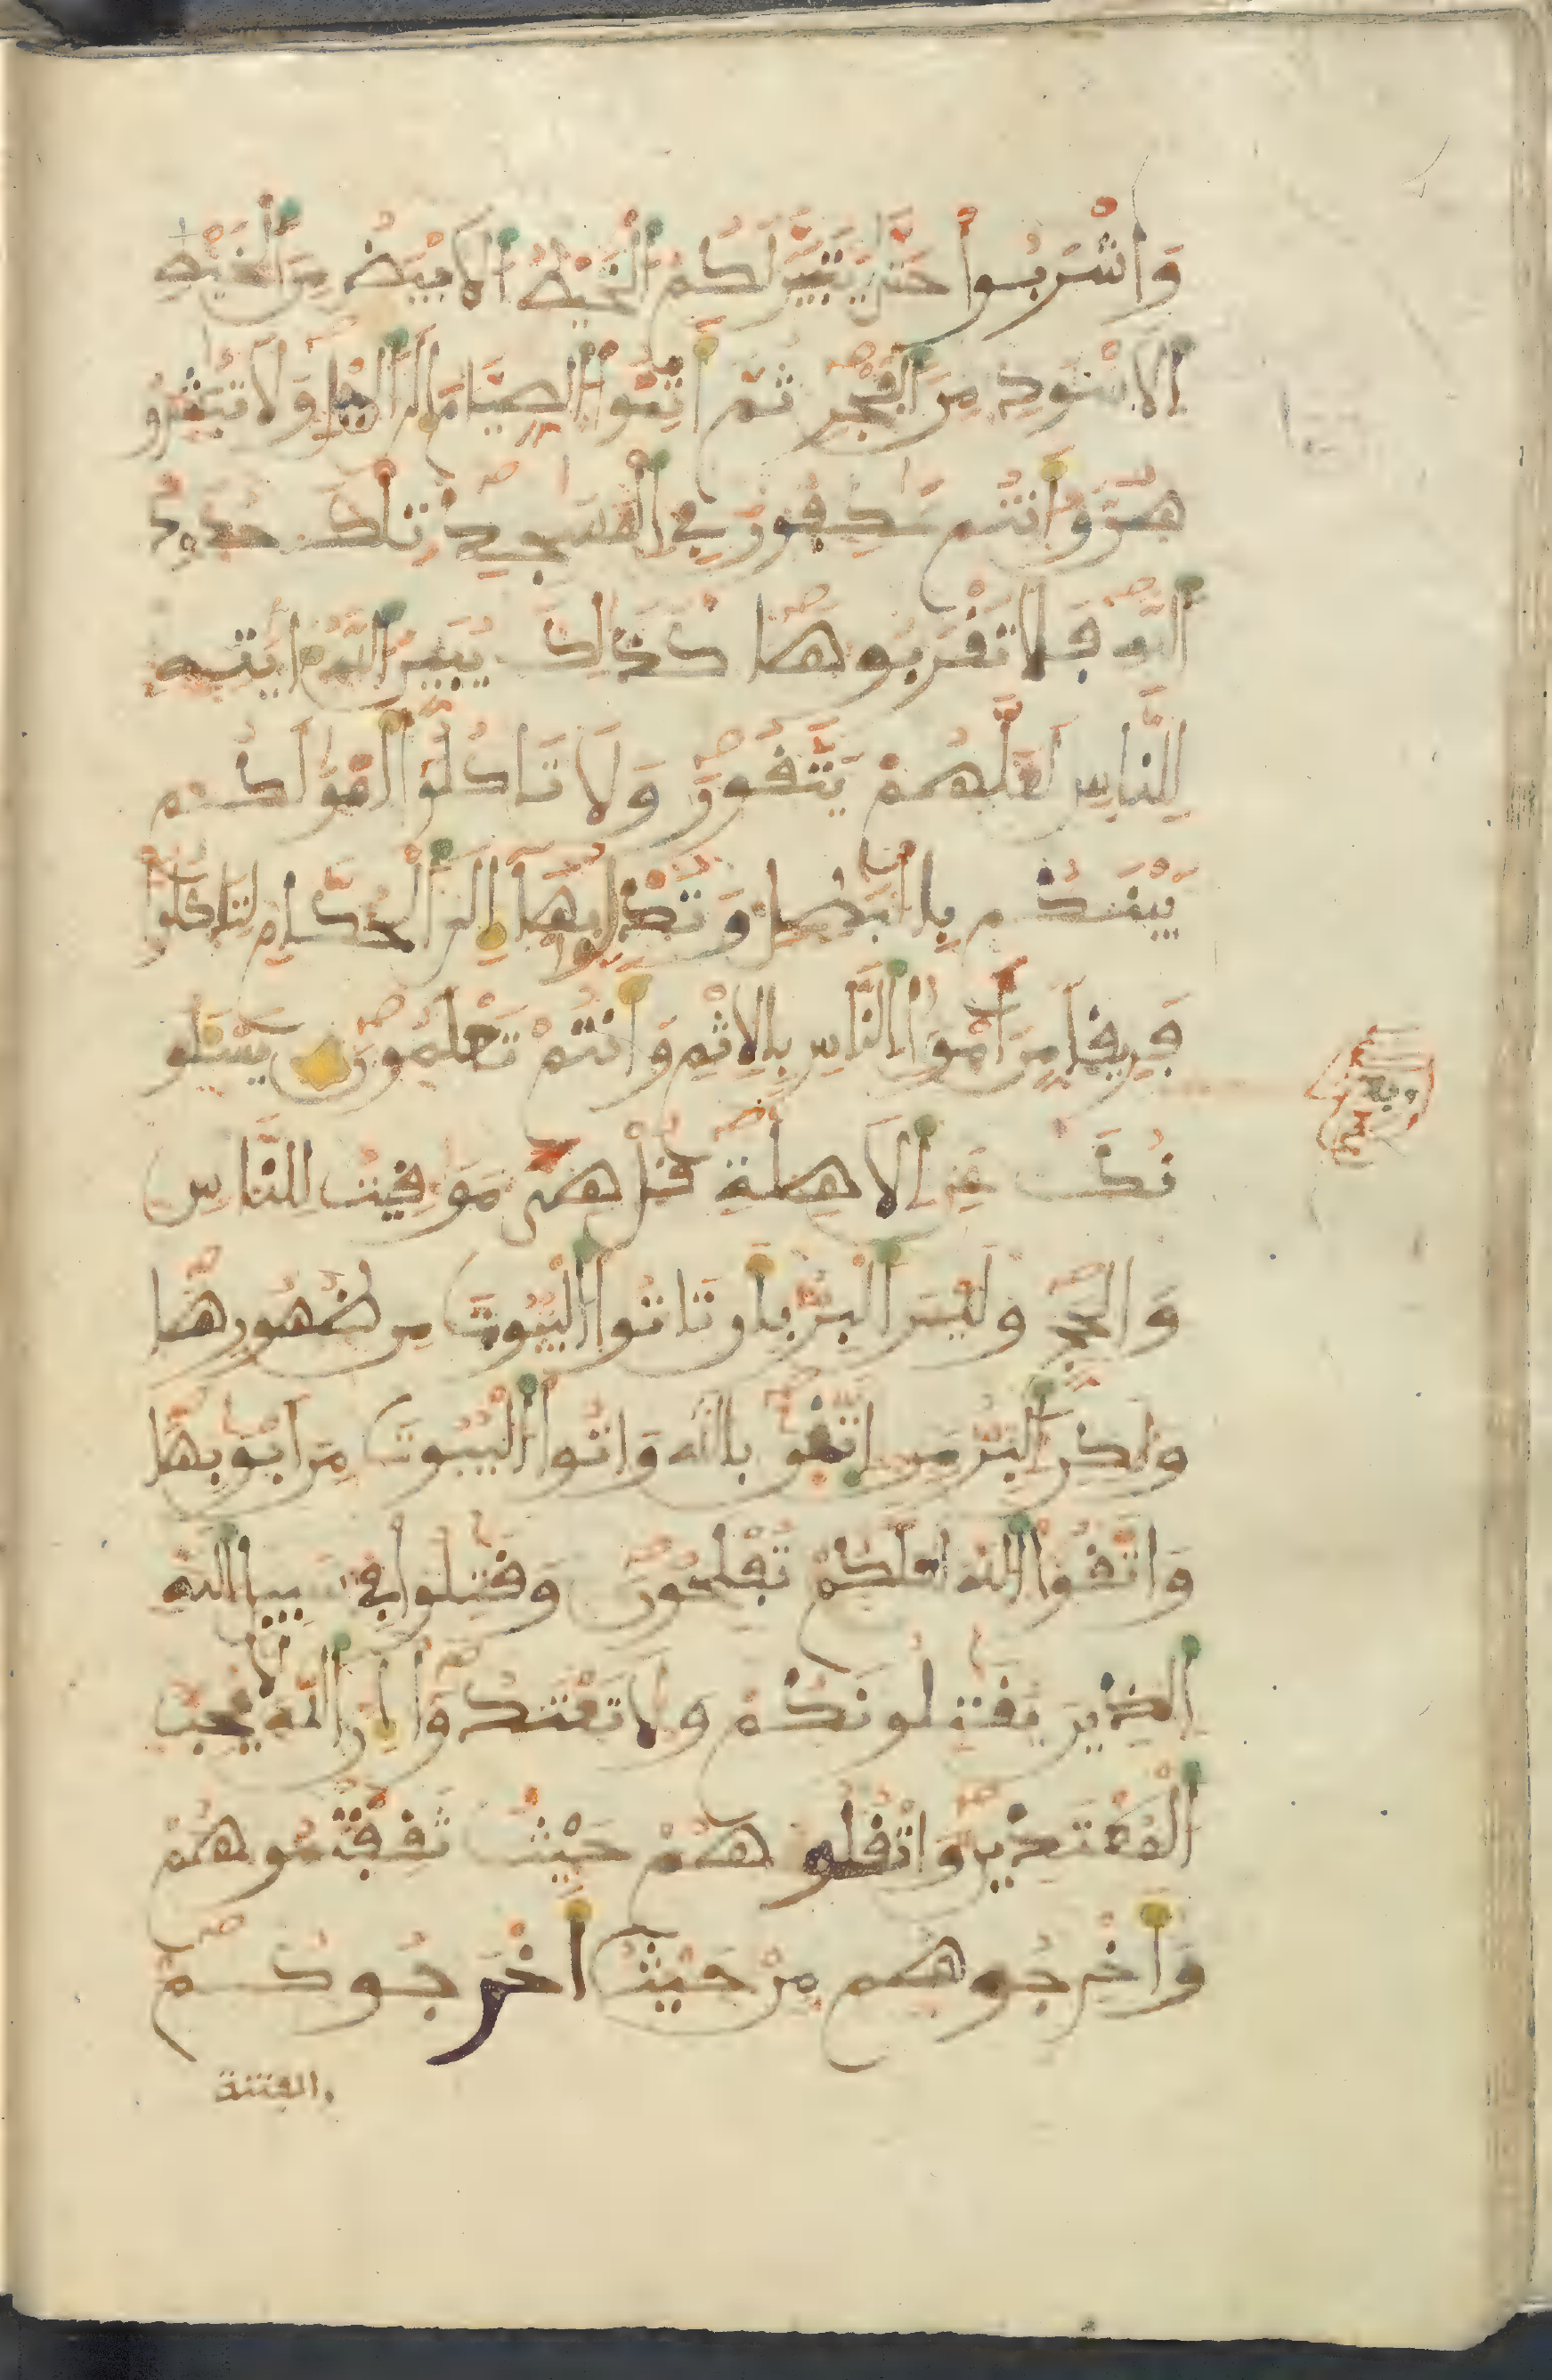 وَاشْرَبُوا حَتَّىٰ يَتَبَيَّنَ لَكُمُ الْخَيْطُ الْاَبْيَضُ مِنَ الْخَيْطِ
الْاَسْوَدِ مِنَ الْفَجْرِ ثُمَّ أَتِمُّوا الصِّيَامَ إِلَى الَّيْلِ وَلَا تُبَٰشِرُو
هُنَّ وَأَنتُمْ عَٰكِفُونَ فِي الْمَسَٰجِدِ تِلْكَ حُدُودُ
اللَّهِ فَلَا تَقْرَبُوهَا كَذَٰلِكَ يُبَيِّنُ اللَّهُ ءَايَٰتِهِ
لِلنَّاسِ لَعَلَّهُمْ يَتَّقُونَ وَلَا تَاكُلُوا أَمْوَٰلَكُم
بَيْنَكُم بِالْبَٰطِلِ وَتُدْلُوا بِهَا إِلَى الْحُكَّامِ لِتَاكُلُوا
فَرِيقًا مِّنَ اَمْوَٰلِ النَّاسِ بِالْاِثْمِ وَأَنتُمْ تَعْلَمُونَ يَسْـَٔلُو
نَكَ عَنِ الْاَهِلَّةِ قُلْ هِيَ مَوَٰقِيتُ لِلنَّاسِ
وَالْحَجِّ وَلَيْسَ الْبِرُّ بِأَن تَاتُوا الْبُيُوتَ مِن ظُهُورِهَا
وَلَٰكِنِ الْبِرُّ مَنِ اتَّقَىٰ بالله وَاتُوا الْبُيُوتَ مِنَ اَبْوَٰبِهَا
وَاتَّقُوا اللَّهَ لَعَلَّكُمْ تُفْلِحُونَ وَقَٰتِلُوا فِي سَبِيلِ اللَّهِ
الَّذِينَ يُقَٰتِلُونَكُمْ وَلَا تَعْتَدُوا إِنَّ اللَّهَ لَا يُحِبُّ
الْمُعْتَدِينَ وَاقْتُلُوهُمْ حَيْثُ ثَقِفْتُمُوهُمْ
وَأَخْرِجُوهُم مِّنْ حَيْثُ أَخْرَجُوكُمْ
والفتنة